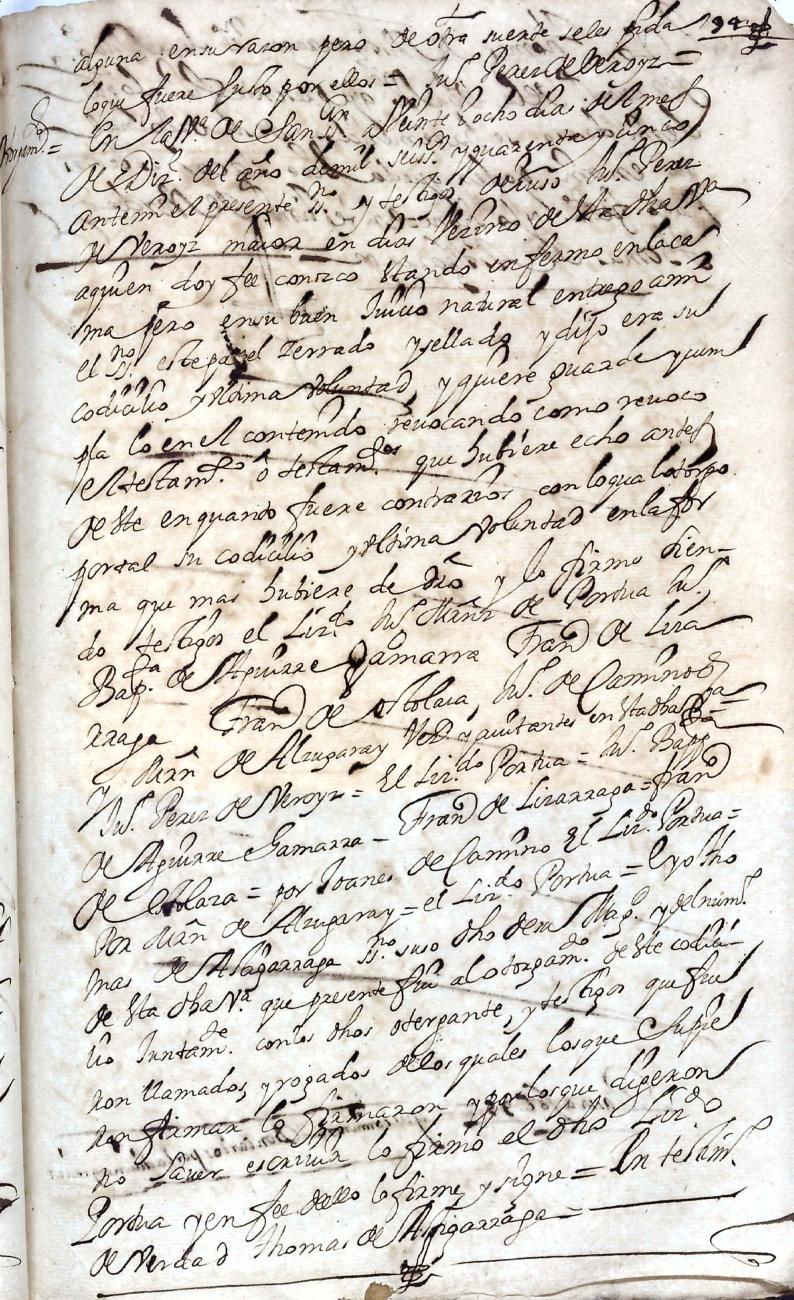 94
alguna en su razon pero de otra suerte se les pida
lo que fuere Justo por ellos = Ju.º Perez de Veroyz =
En la v.ª de San a Veinte y ocho dias del mes
de Diz.e del año de mil seiss.os y quarenta y cinco
antemi el presente ss.no y testigos de iuso Ju.º Perez
de Veroyz maior en dias Vezino de Sta dha V.ª
a quien doy fee conozco Stando enfermo en la ca
ma pero en su buen Juicio natural entrego a mi
el ss.no este papel zerrado y sellado y dijo era su
codicilio y Vltima Voluntad, y quiere guarde y cum
pla lo en el contenido reuocando como reuoco
el testam.to o testam.tos que hubiere echo antes
de Ste en quanto fuere contrarios con lo qual otorgo
por tal su codicilio y Vltima Voluntad en la for
ma que mas hubiere de dro y lo firmo sien-
do testigos el Liz.do Ju.º Miñz de Portua Ju.º
Bap.ta de Aguirre Gamarra Fran.co de Liza
rraga Fran.co de Ostolaza, Ju.º de Camino
y Mrn de Alzugaray Vez.os y auitantes en Sta dha V.ª =
Ju.º Perez de Veroyz = El Liz.do Portua = Ju.º Bap.ta
de Aguirre Gamarra - Fran.co de Lizarraga = fran.co
de Ostolaza = por Joanes de Camino El Liz.do Portua =
Por Mrn de Alzugaray = el Liz.do Portua = E yo Tho
mas de Asigarraga ss.no suso dho de su Mag.d y del num.º
de Sta dha V.ª que presente fui al otorgam.to de Ste codici-
lio Juntam.te con los dhos otorgante, y testigos que fue
ron llamados, y rogados de los quales los que Supie
ron firmar lo firmaron y por los que digeron
no sauer escriuir lo firmo el dho Liz.do
Portua y en fee dello lo firme y signe = En testim.º
de Verdad Thomas de Asigarraga =